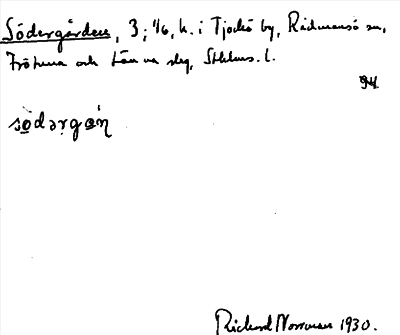 Södergården, 3; 1/6, h. i Tjockö by, Rådmansö sn,
Frötuna och Länna slg, Sthlms. l.
94
södərgɑ́ɳ
Richard Norrman 1930.